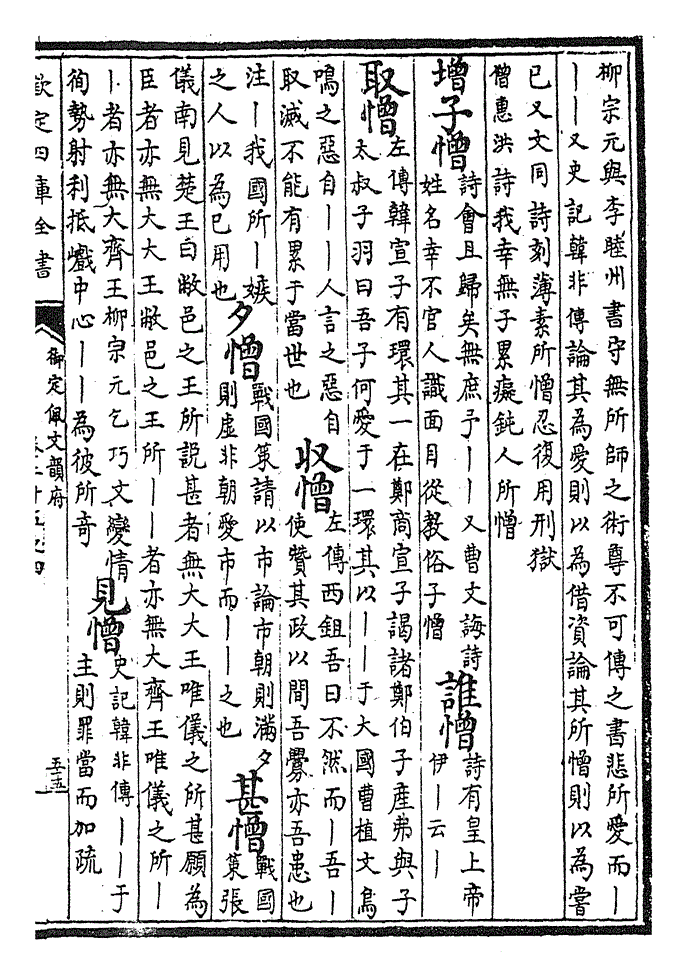 柳宗元與李睦州書守無所師之術尊不可傳之書悲所愛而丨
丨丨又史記韓非傳論其為愛則以為借資論其所憎則以為嘗
已又文同詩刻薄素所憎忍復用刑獄
僧惠洪詩我幸無子累癡鈍人所憎
增子憎
詩會且歸矣無庶予丨丨又曹文誨詩
姓名幸不官人識面目從教俗子憎
誰憎
詩有皇上帝
伊丨云丨
取憎
左傳韓宣子有環其一在鄭商宣子謁諸鄭伯子產弗與子
太叔子羽曰吾子何愛于一環其以丨丨于大國曹植文鳥
鳴之惡自丨丨人言之惡自
取滅不能有累于當世也
収憎
左傳西鉏吾曰不然而丨吾丨
使贊其政以間吾釁亦吾患也
注丨我國所丨嫉
之人以為已用也
夕憎
戰國策請以市論市朝則滿夕
則虛非朝愛市而丨丨之也
甚憎
戰國
策張
儀南見楚王曰敝邑之王所說甚者無大大王唯儀之所甚願為
臣者亦無大大王敝邑之王所丨丨者亦無大齊王唯儀之所丨
丨者亦無大齊王柳宗元乞巧文變情
徇勢射利抵巇中心丨丨為彼所奇
見憎
史記韓非傳丨丨于
主則罪當而加疏
欽定四庫全書
御定佩文韻府
卷二十五之四
五五